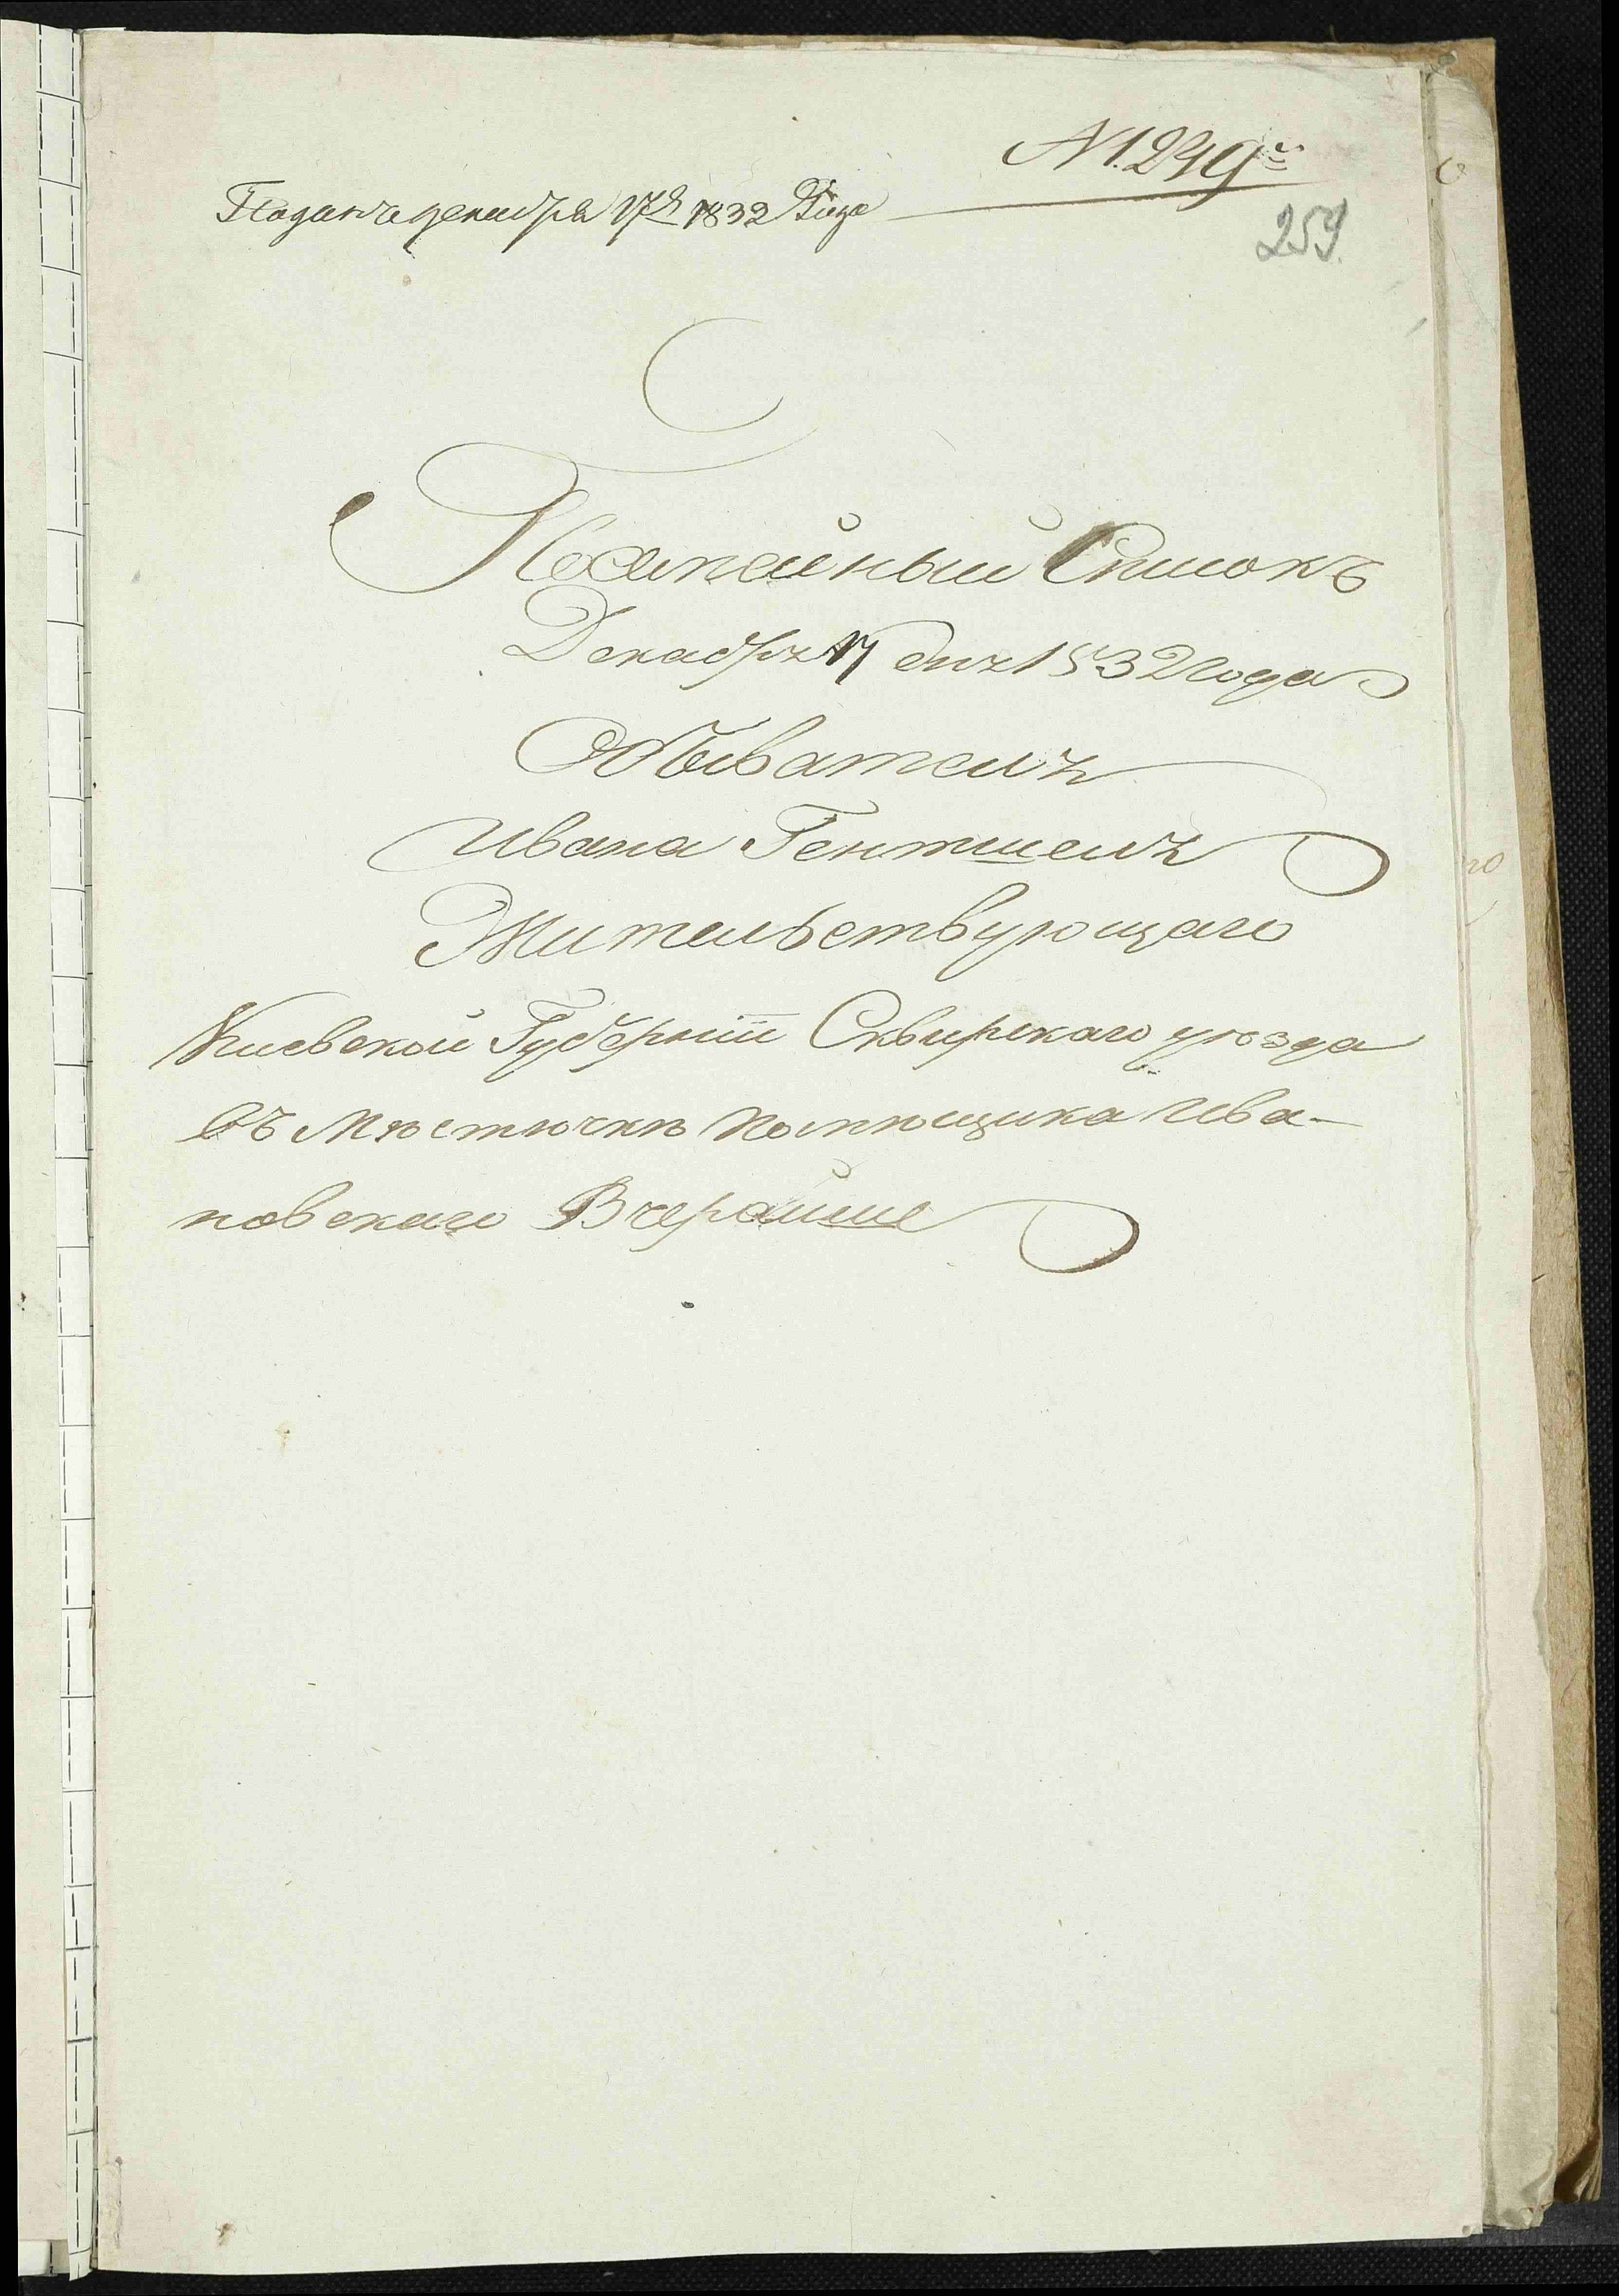 № 1.249й
Подана декабря 17д 1832 Года
259.
Посемейный Списокъ
Декабря 17 дня 1832 года
Обывателя
Ивана Гентшеля
Жительствующаго
Киевской Губерніи Сквирскаго уѣзда
Въ Мѣстѣчкѣ Помѣщика Ива-
новскаго Вчерайше